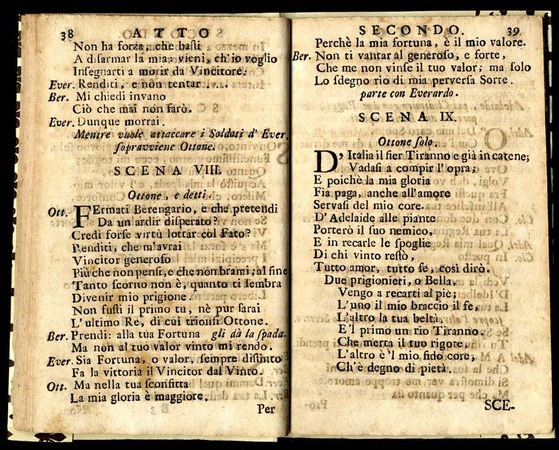 38 ATTO
Non ha forza, che basti
A disarmar la mia: vieni, ch'io voglio
Insegnarti a morir da Vincitore.
Ever. Renditi, e non tentar - - -
Ber. Mi chiedi invano
Ciò che mai non farò.
Ever. Dunque morrai.
Mentre vuole attaccare i Soldati d'Ever.
sopravviene Ottone.
SCENA VIII.
Ottone, e detti.
Ott. FErmati Berengario, e che pretendi
Da un ardir disperato?
Credi forse virtù lottar col Fato?
Renditi, che m'avrai
Vincitor generoso
Più che non pensi, e che non brami; al fine
Tanto scorno non è, quanto ti sembra
Divenir mio prigione.
Non fusti il primo tu, nè pur sarai
L'ultimo Re, di cui trionfi Ottone.
Ber. Prendi: alla tua Fortuna gli dà la spada.
Ma non al tuo valor vinto mi rendo.
Ever. Sia Fortuna, o valor, sempre distinto
Fa la vittoria il Vincitor dal Vinto.
Ott. Ma nella tua sconfitta
La mia gloria è maggiore.
Per
SECONDO. 39
Perchè la mia fortuna, è il mio valore.
Ber. Non ti vantar sì generoso, e forte,
Che me non vinse il tuo valor; ma solo
Lo sdegno rio di mia perversa Sorte.
parte con Everardo.
SCENA IX.
Ottone solo.
D'Italia il fier Tiranno e già in catene;
Vadasi a compir l'opra;
E poichè la mia gloria
Fia paga, anche all'amore
Servasi del mio core.
D'Adelaide alle piante
Porterò il suo nemico,
E in recarle le spoglie
Di chi vinto restò,
Tutto amor, tutto fe, così dirò.
Due prigionieri, o Bella,
Vengo a recarti al piè;
L'uno il mio braccio il fe,
L'altro la tua beltà.
E'l primo un rio Tiranno.
Che merta il tuo rigore,
L'altro è 'l mio fido core,
Ch'è degno di pietà.
SCE-